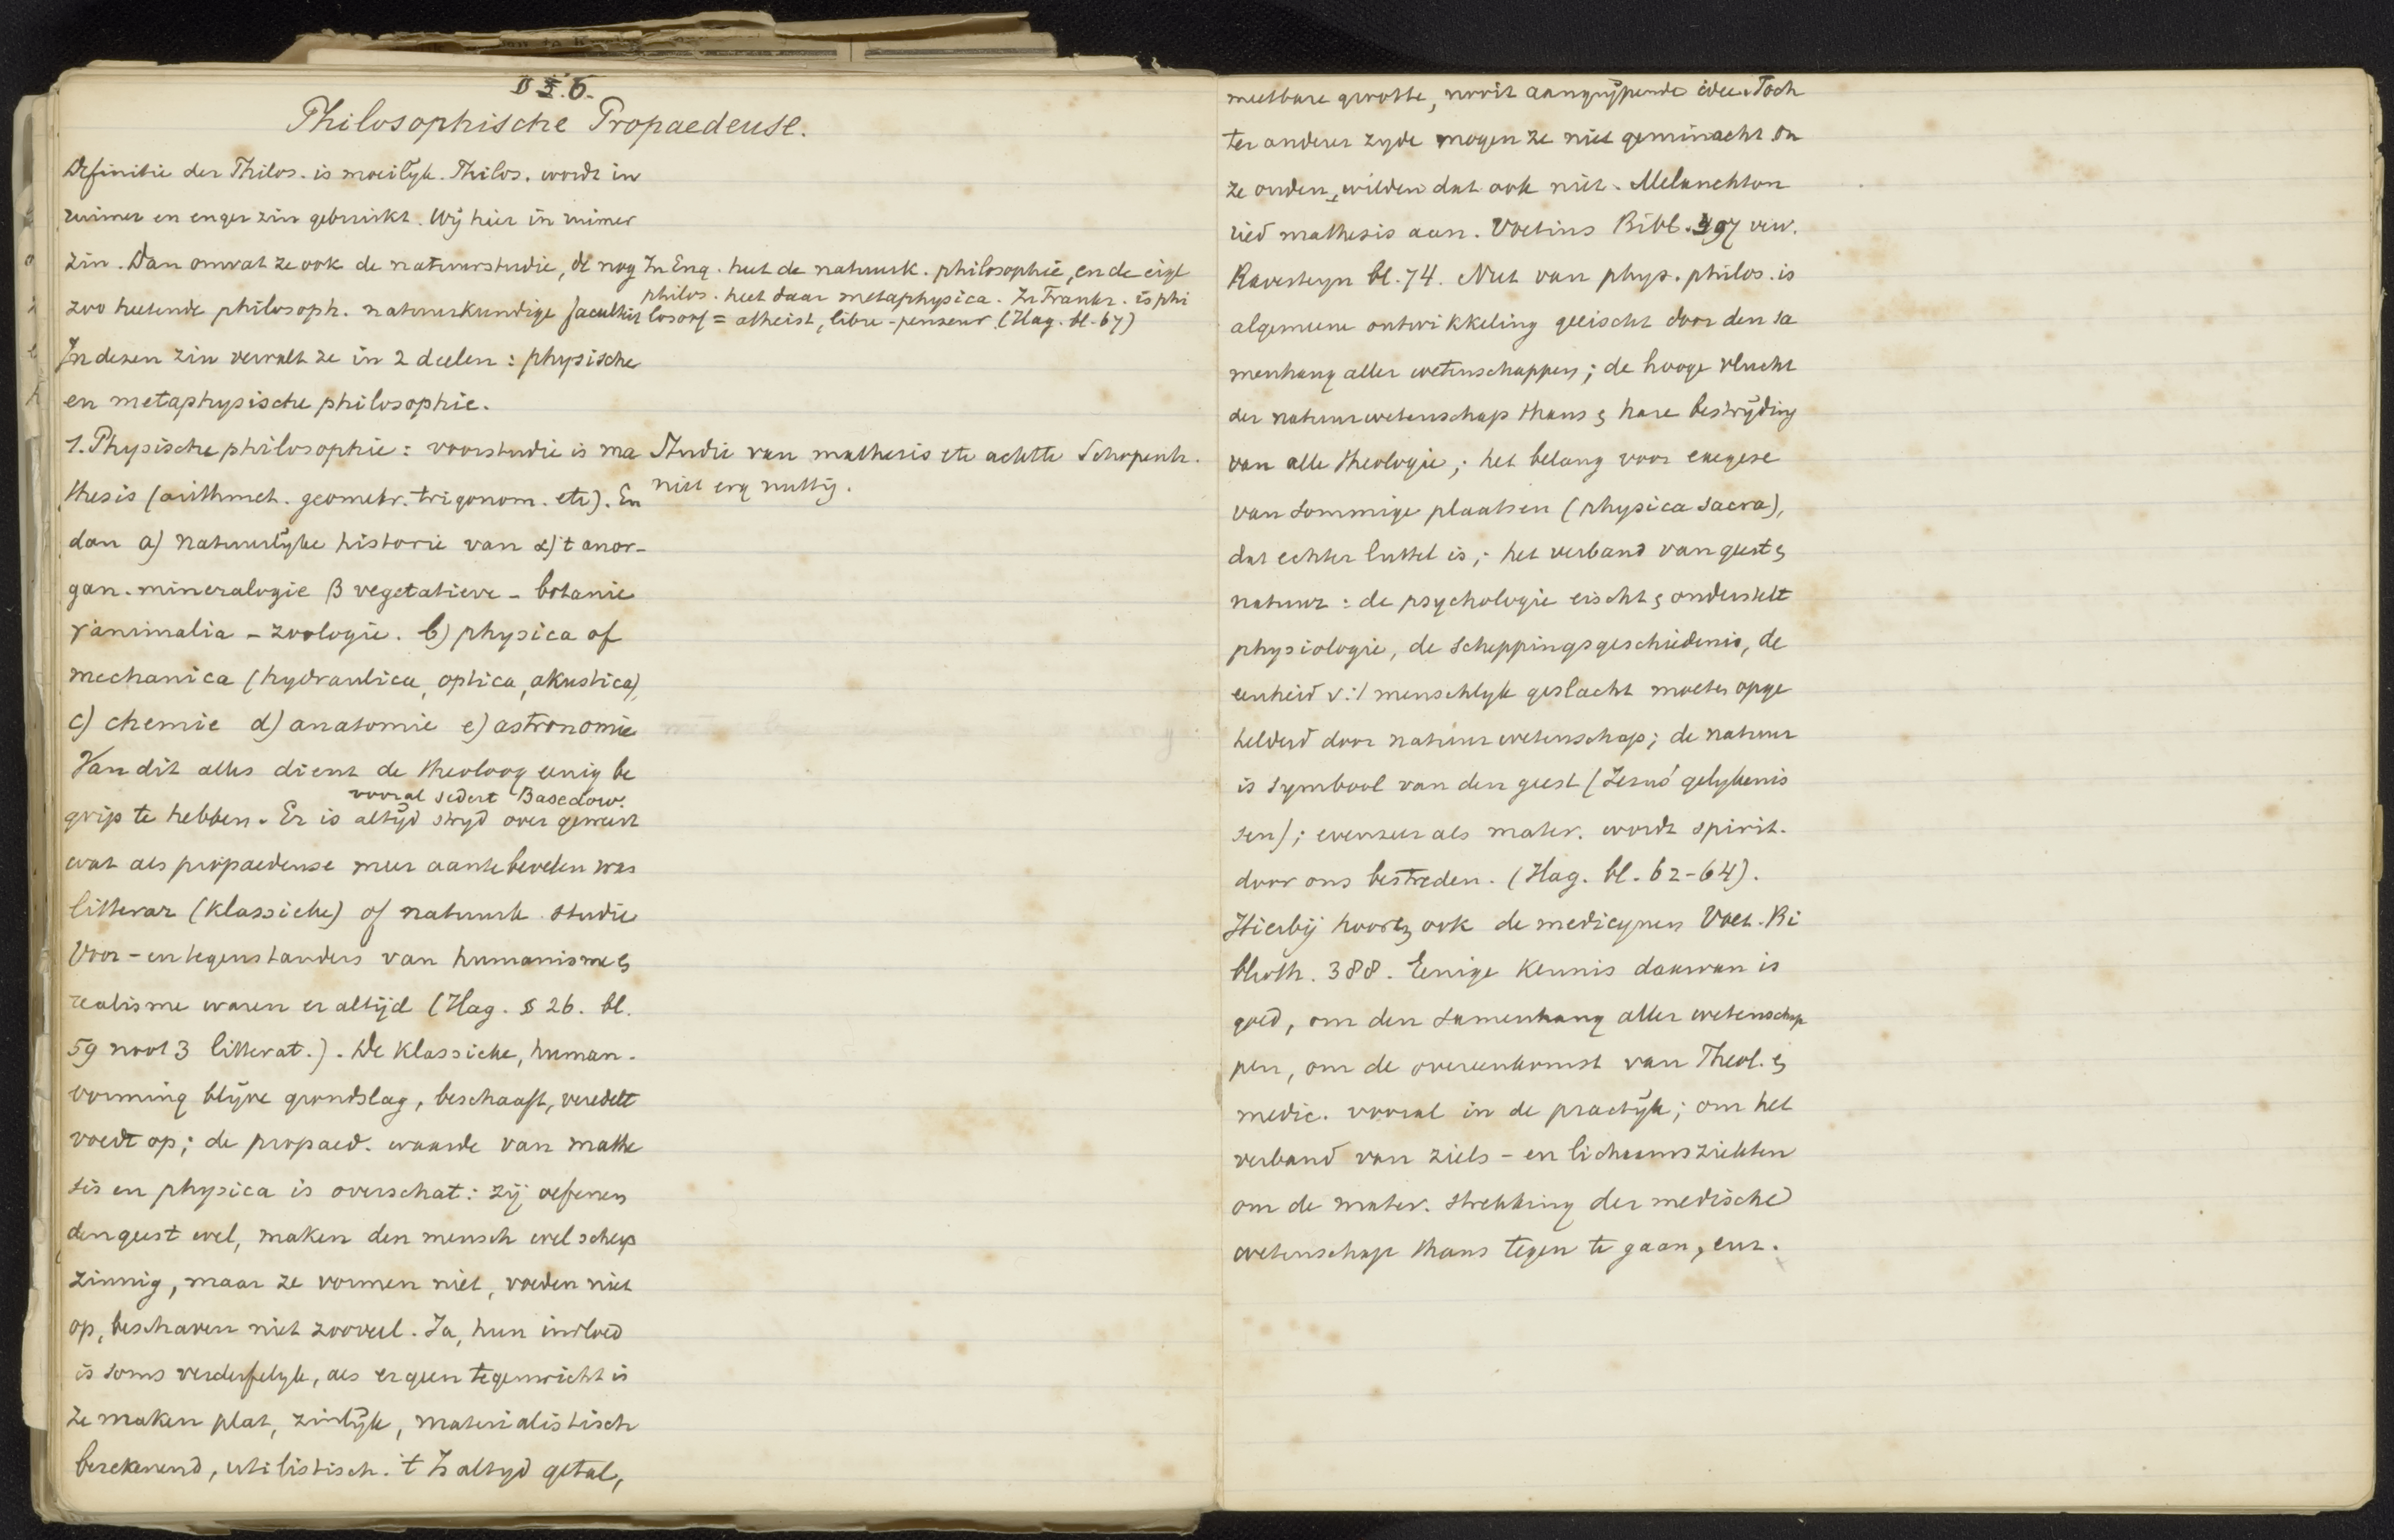 § 6.
Philosophische Propaedeuse.
Definitie der Philos. is moeilijk. Philos. wordt in
ruimer en enger zin gebruikt. Wij hier in ruimer
zin. Dan omvat ze ook de natuurstudie, de nog
zoo heetende philosoph. natuurkundige faculteit
In Eng. heet de natuurk. philosophie, en de eigl
philos. heet daar metaphysica. In Frankr. is phi
losoof = atheist, libre-penseur (Hag. bl. 67)
In dezen zin vervalt ze in 2 deelen: physische
en metaphysische philosophie.
1. Physische philosophie: voorstudie is ma
thesis (arithmet. geometr. trigonom. etc). En
Studie van mathesis etc achtte Schopenh.
niet erg nuttig.
dan a) natuurlijke historie van α) 't anor-
gan. mineralogie β vegetatieve - botanie
γ animalia - zoologie. b) physica of
mechanica (hydraulica, optica, akustica),
c) chemie d) anatomie e) astronomie
Van dit alles dient de theoloog eenig be
grip te hebben. Er is altijd strijd over geweest
vooral sedert Basedow.
wat als propaedeuse meer aantebevelen was
litterar (klassieke) of natuurk. studie
Voor- en tegenstanders van humanisme &
realisme waren er altijd (Hag. § 26. bl.
59 noot 3 litterat.). De klassieke, human.
vorming blijve grondslag, beschaaft, veredelt
voedt op; de propaed. waarde van mathe
sis en physica is overschat: zij oefenen
den geest wel, maken den mensch wel scherp
zinnig, maar ze vormen niet, voeden niet
op, beschaven niet zooveel. Ja, hun invloed
is soms verderfelijk, als er geen tegenwicht is
ze maken plat, zinlijk, materialistisch
berekenend, utilistisch. 't Is altijd getal,
meetbare grootte, nooit aangrijpende idee. Toch
ter anderer zijde mogen ze niet geminacht On
ze ouden wilden dat ook niet. Melanchton
ried mathesis aan. Voetius Bibl. 397 verv.
Ravesteyn bl. 74. Nut van phys. philos. is
algemeene ontwikkeling geeischt door den sa
menhang aller wetenschappen; de hooge vlucht
der natuurwetenschap thans & hare bestrijding
van alle theologie; het belang voor exegese
van sommige plaatsen (physica sacra),
dat echter luttel is; het verband van geest &
natuur: de psychologie eischt & onderstelt
physiologie, de scheppingsgeschiedenis, de
eenheid v. 't menschlijk geslacht moeten opge
helderd door natuurwetenschap; de natuur
is symbool van den geest (Jezus' gelijkenis
sen); evenzeer als mater. wordt spirit.
door ons bestreden. (Hag. bl. 62-64).
Hierbij hooren ook de medicijnen Voet. Bi
blioth. 388. Eenige kennis daarvan is
goed, om den samenhang aller wetenschap
pen, om de overeenkomst van Theol. &
medic. vooral in de practijk; om het
verband van ziels- en lichaamsziekten
om de mater. strekking der medische
wetenschap thans tegen te gaan, enz.